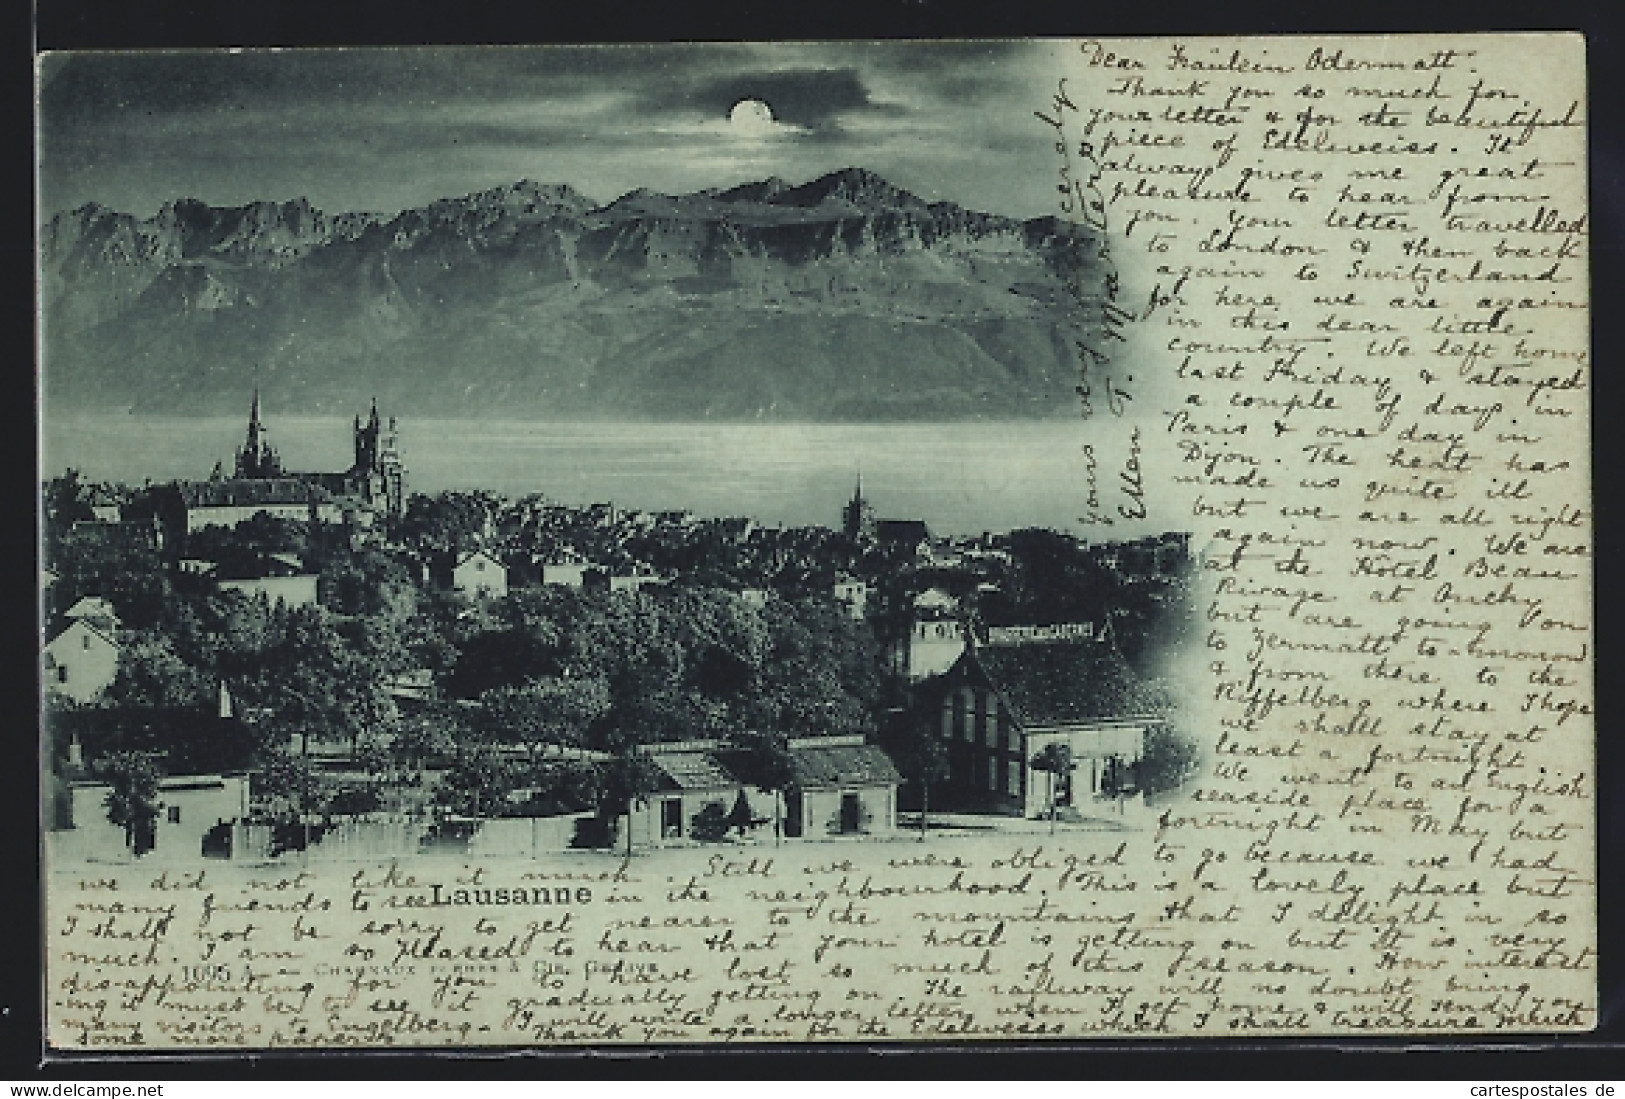 Dear Fräulein Odermatt.
Thank you so much for
your letter & for the beautiful
piece of Edelweiss. It
always gives me great
pleasure to hear from
you. Your letter travelled
to London & then back
again to Switzerland
for here we are again
in this dear little
country. We left home
last Friday & stayed
a couple of days in
Paris & one day in
Dijon. The heat has
made us quite ill
but we are all right
again now. We are
at the Hotel Beau
Rivage at Ouchy
but are going on
to Zermatt to-morrow
& from there to the
Riffelberg where I hope
we shall stay at
least a fortnight.
We went to an English
seaside place for a
fortnight in May but
we did not like it much. Still we were obliged to go because we had
many friends to see in the neighbourhood. This is a lovely place but
I shall not be sorry to get nearer to the mountains that I delight in so
much. I am so pleased to hear that your hotel is getting on but it is very
dis-appointing for you to have lost so much of this season. How interest
-ing it must be to see it gradually getting on. The railway will no doubt bring
many visitors to Engelberg- I will write a longer letter when I get home & will send you
some more papers. Thank you again for the Edelweiss which I shall treasure much
Yours very sincerely
Ellen T. Marters
Lausanne
1695 A. - Charnaux Frères & Cie, Genève
cartespostales de